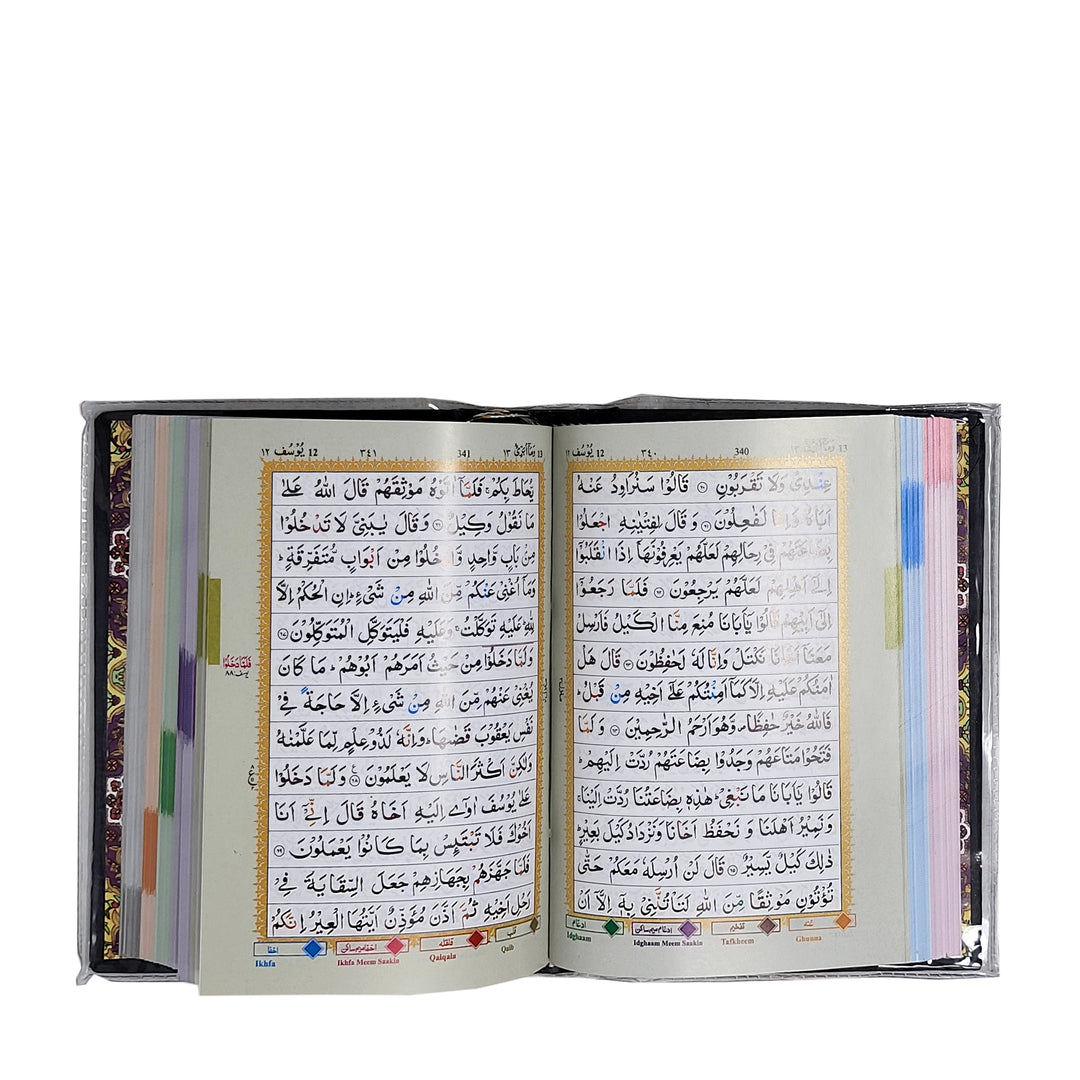 13 وَمَآ اُبَرِّئُ ١٣
340
٣٤٠
12 يُوْسُف ١٢
عِنْدِیْ وَلَا تَقْرَبُوْنِ ﴿٦٠﴾ قَالُوْا سَنُرَاوِدُ عَنْهُ
اَبَاهُ وَاِنَّا لَفٰعِلُوْنَ ﴿٦١﴾ وَقَالَ لِفِتْيٰنِهِ اجْعَلُوْا
بِضَاعَتَهُمْ فِیْ رِحَالِهِمْ لَعَلَّهُمْ يَعْرِفُوْنَهَاۤ اِذَا انْقَلَبُوْۤا
اِلٰۤی اَهْلِهِمْ لَعَلَّهُمْ يَرْجِعُوْنَ ﴿٦٢﴾ فَلَمَّا رَجَعُوْۤا
اِلٰۤی اَبِيْهِمْ قَالُوْا يٰۤاَبَانَا مُنِعَ مِنَّا الْكَيْلُ فَاَرْسِلْ
مَعَنَاۤ اَخَانَا نَكْتَلْ وَاِنَّا لَهٗ لَحٰفِظُوْنَ ﴿٦٣﴾ قَالَ هَلْ
اٰمَنُكُمْ عَلَيْهِ اِلَّا كَمَاۤ اَمِنْتُكُمْ عَلٰۤی اَخِيْهِ مِنْ قَبْلُ ؕ
فَاللّٰهُ خَيْرٌ حٰفِظًا ۪ وَّهُوَ اَرْحَمُ الرّٰحِمِيْنَ ﴿٦٤﴾ وَلَمَّا
فَتَحُوْا مَتَاعَهُمْ وَجَدُوْا بِضَاعَتَهُمْ رُدَّتْ اِلَيْهِمْ ؕ
قَالُوْا يٰۤاَبَانَا مَا نَبْغِیْ ؕ هٰذِهٖ بِضَاعَتُنَا رُدَّتْ اِلَيْنَا ۚ
وَنَمِيْرُ اَهْلَنَا وَنَحْفَظُ اَخَانَا وَنَزْدَادُ كَيْلَ بَعِيْرٍ ؕ
ذٰلِكَ كَيْلٌ يَّسِيْرٌ ﴿٦٥﴾ قَالَ لَنْ اُرْسِلَهٗ مَعَكُمْ حَتّٰی
تُؤْتُوْنِ مَوْثِقًا مِّنَ اللّٰهِ لَتَاْتُنَّنِیْ بِهٖۤ اِلَّاۤ اَنْ
غنه
Ghunna
تفخیم
Tafkheem
ادغام میم ساکن
Idghaam Meem Saakin
ادغام
Idghaam
13 وَمَآ اُبَرِّئُ ١٣
341
٣٤١
12 يُوْسُف ١٢
يُّحَاطَ بِكُمْ ۚ فَلَمَّاۤ اٰتَوْهُ مَوْثِقَهُمْ قَالَ اللّٰهُ عَلٰی
مَا نَقُوْلُ وَكِيْلٌ ﴿٦٦﴾ وَقَالَ يٰبَنِیَّ لَا تَدْخُلُوْا
مِنْۢ بَابٍ وَّاحِدٍ وَّادْخُلُوْا مِنْ اَبْوَابٍ مُّتَفَرِّقَةٍ ؕ
وَمَاۤ اُغْنِیْ عَنْكُمْ مِّنَ اللّٰهِ مِنْ شَیْءٍ ؕ اِنِ الْحُكْمُ اِلَّا
لِلّٰهِ ؕ عَلَيْهِ تَوَكَّلْتُ ۚ وَعَلَيْهِ فَلْيَتَوَكَّلِ الْمُتَوَكِّلُوْنَ ﴿٦٧﴾
وَلَمَّا دَخَلُوْا مِنْ حَيْثُ اَمَرَهُمْ اَبُوْهُمْ ؕ مَا كَانَ
يُغْنِیْ عَنْهُمْ مِّنَ اللّٰهِ مِنْ شَیْءٍ اِلَّا حَاجَةً فِیْ
نَفْسِ يَعْقُوْبَ قَضٰىهَا ؕ وَاِنَّهٗ لَذُوْ عِلْمٍ لِّمَا عَلَّمْنٰهُ
وَلٰكِنَّ اَكْثَرَ النَّاسِ لَا يَعْلَمُوْنَ ﴿٦٨﴾ وَلَمَّا دَخَلُوْا
عَلٰی يُوْسُفَ اٰوٰۤی اِلَيْهِ اَخَاهُ قَالَ اِنِّیْۤ اَنَا
اَخُوْكَ فَلَا تَبْتَئِسْ بِمَا كَانُوْا يَعْمَلُوْنَ ﴿٦٩﴾
فَلَمَّا جَهَّزَهُمْ بِجَهَازِهِمْ جَعَلَ السِّقَايَةَ فِیْ
رَحْلِ اَخِيْهِ ثُمَّ اَذَّنَ مُؤَذِّنٌ اَيَّتُهَا الْعِيْرُ اِنَّكُمْ
فَلَمَّا دَخَلُوْا
يوسف:٨٨
قلب
Qalb
قلقله
Qalqala
اخفا میم ساکن
Ikhfa Meem Saakin
اخفا
Ikhfa